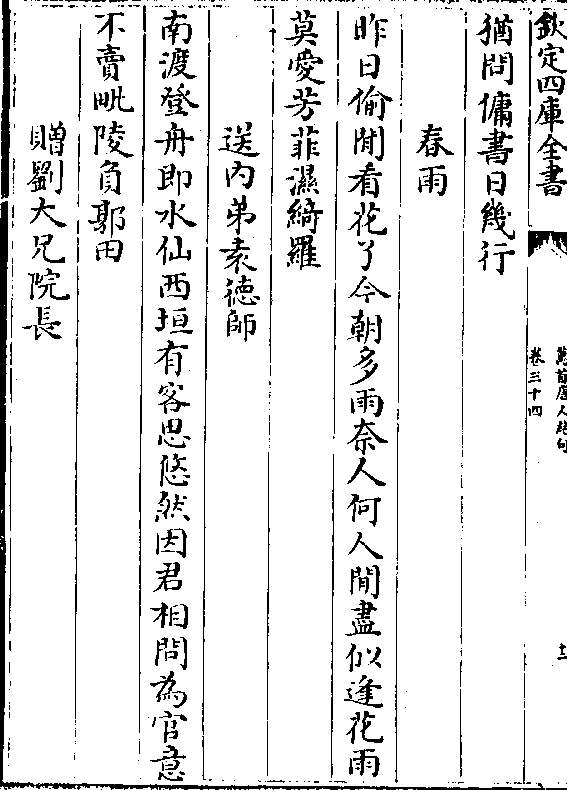 欽定四庫全書
萬首唐人絶句
卷三十四
十二
猶問傭書日幾行
春雨
昨日偷閒看花了今朝多雨奈人何人閒盡似逢花雨
莫愛芳菲濕綺羅
送内弟袁德師
南渡登舟即水仙西垣有客思悠然因君相問為官意
不賣毗陵負郭田
贈劉大兄院長